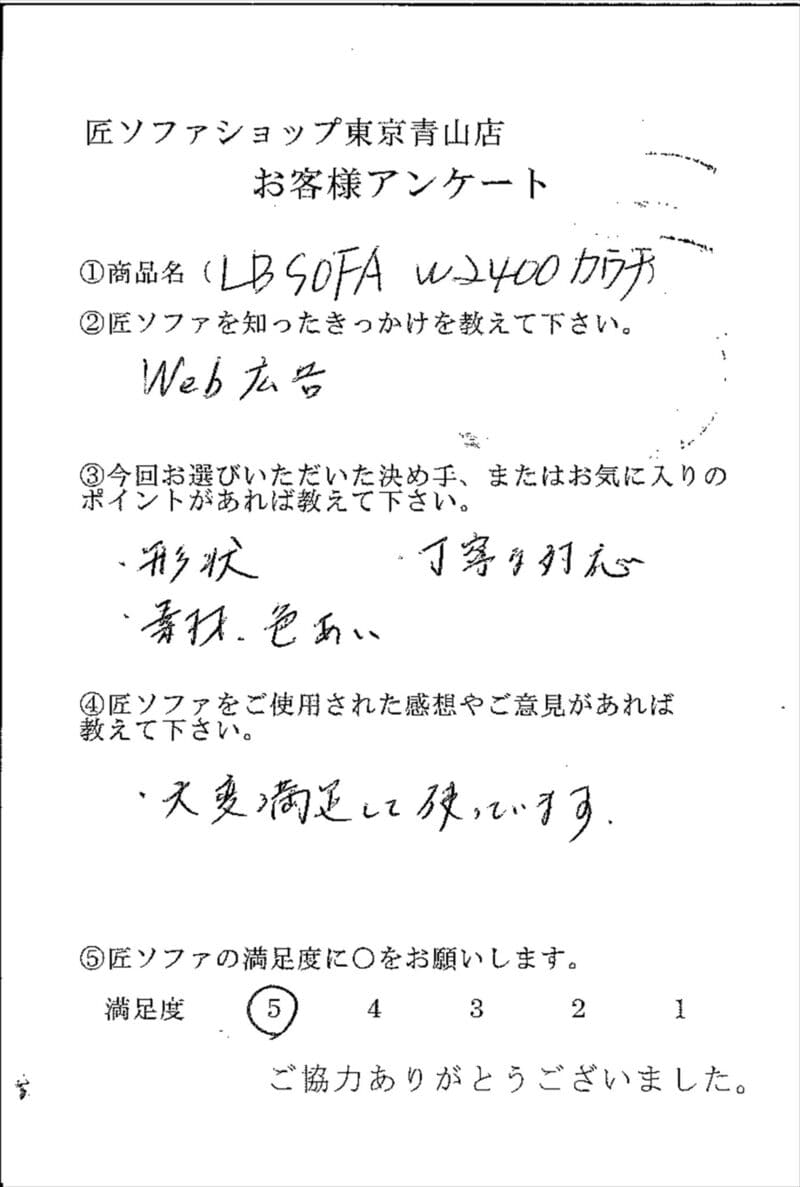 匠ソファショップ東京青山店
お客様アンケート
①商品名（LB SOFA W2400カウチ
②匠ソファを知ったきっかけを教えて下さい。
Web広告
③今回お選びいただいた決め手、またはお気に入りの
ポイントがあれば教えて下さい。
・形状 ・丁寧な対応
・素材、色あい
④匠ソファをご使用された感想やご意見があれば
教えて下さい。
・大変満足して使っています.
⑤匠ソファの満足度に〇をお願いします。
満足度 5 4 3 2 1
ご協力ありがとうございました。